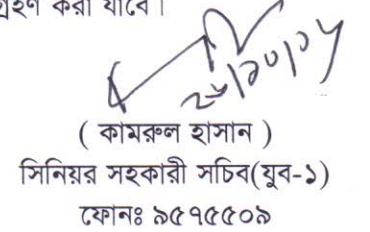 গ্রহণ করা যাবে।
( কামরুল হাসান )
সিনিয়র সহকারী সচিব(যুব-১)
ফোনঃ ৯৫৭৫৫০৯